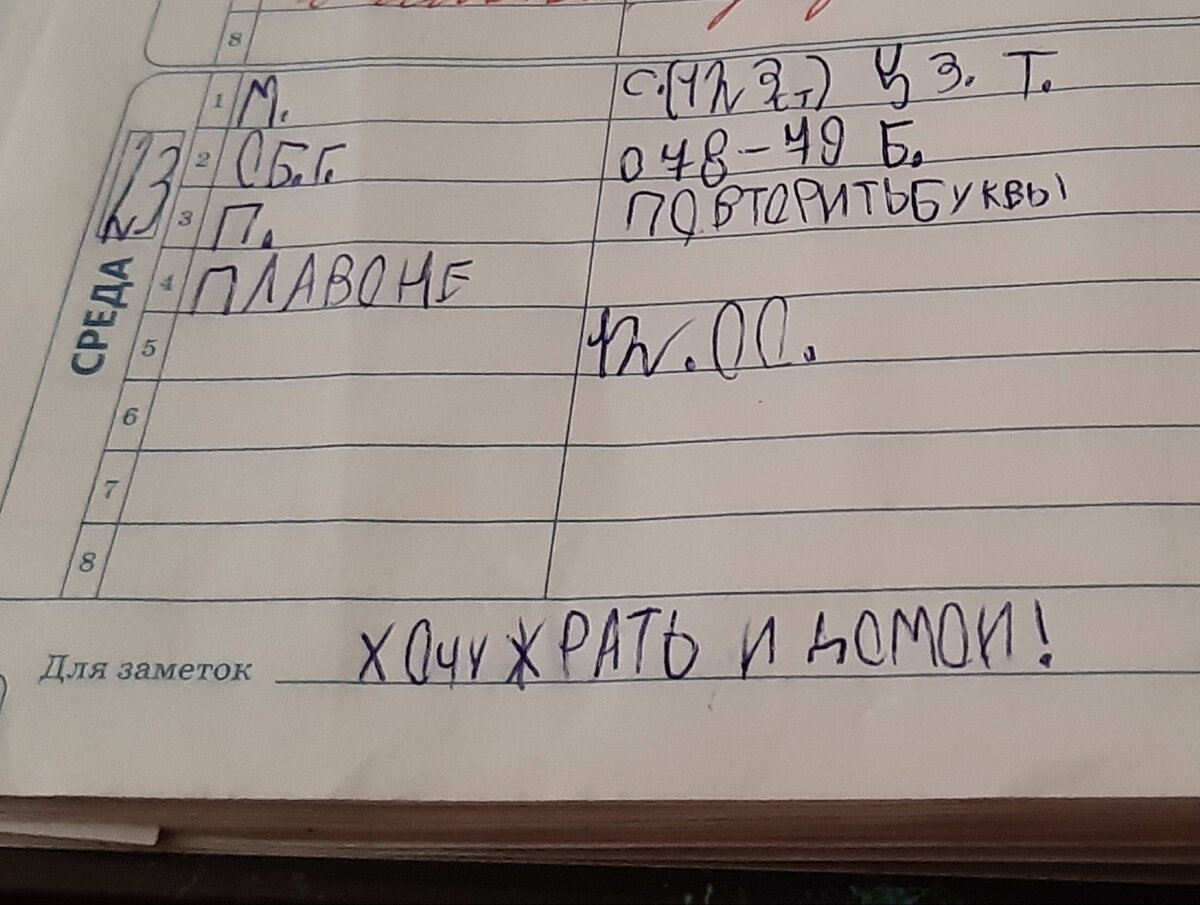 8
СРЕДА
23
1 М. С.(12 3т) Ц З. Т.
2 ОБ.Г. 078-79 Б.
3 П. ПОВТОРИТЬБУКВЫ
4 ПЛАВОНЕ
5 12.00.
6
7
8
Для заметок ХОЧУ ЖРАТЬ И ДОМОЙ!